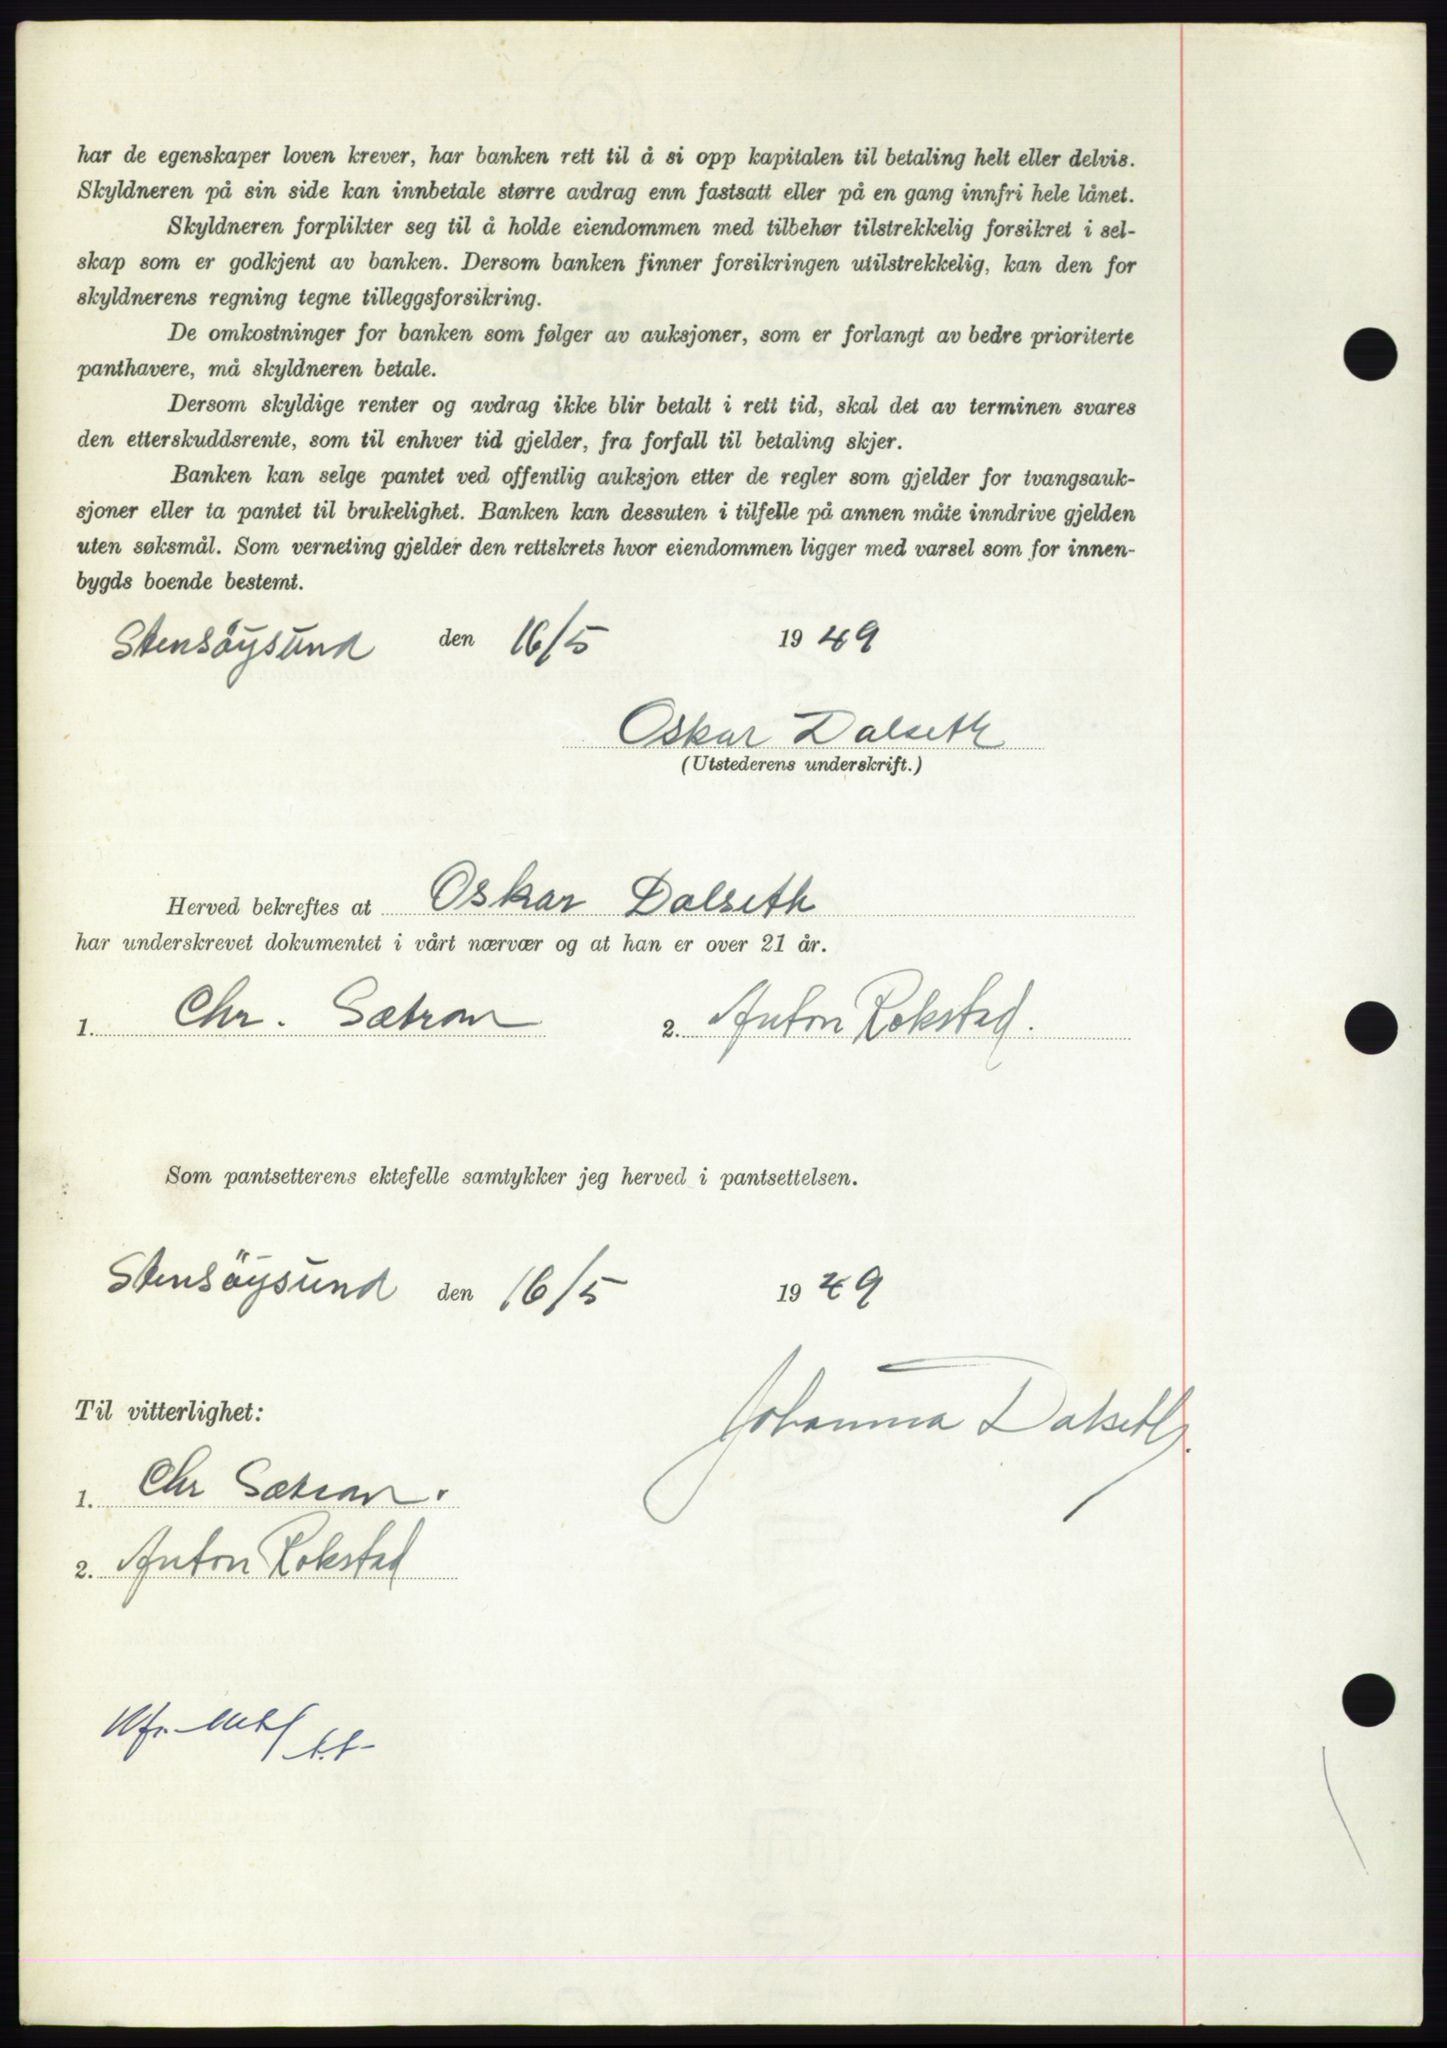 har de egenskaper loven krever, har banken rett til å si opp kapitalen til betaling helt eller delvis.
Skyldneren på sin side kan innbetale større avdrag enn fastsatt eller på en gang innfri hele lånet.
Skyldneren forplikter seg til å holde eiendommen med tilbehør tilstrekkelig forsikret i sel-
skap som er godkjent av banken. Dersom banken finner forsikringen utilstrekkelig, kan den for
skyldnerens regning tegne tilleggsforsikring.
De omkostninger for banken som følger av auksjoner, som er forlangt av bedre prioriterte
panthavere, må skyldneren betale.
Dersom skyldige renter og avdrag ikke blir betalt i rett tid, skal det av terminen svares
den etterskuddsrente, som til enhver tid gjelder, fra forfall til betaling skjer.
Banken kan selge pantet ved offentlig auksjon etter de regler som gjelder for tvangsauk-
sjoner eller ta pantet til brukelighet. Banken kan dessuten i tilfelle på annen måte inndrive gjelden
uten søksmål. Som verneting gjelder den rettskrets hvor eiendommen ligger med varsel som for innen-
bygds boende bestemt.
Stensöysund den 16/5 1949
Oskar Dalseth
(Utstederens underskrift.)
Herved bekreftes at Oskar Dalseth
har underskrevet dokumentet i vårt nærvær og at han er over 21 år.
1. Chr. Sætran 2. Anton Rokstad.
Som pantsetterens ektefelle samtykker jeg herved i pantsettelsen.
Stensöysund den 16/5 1949
Johanna Dalseth.
Til vitterlighet:
1. Chr Sætran.
2. Anton Rokstad